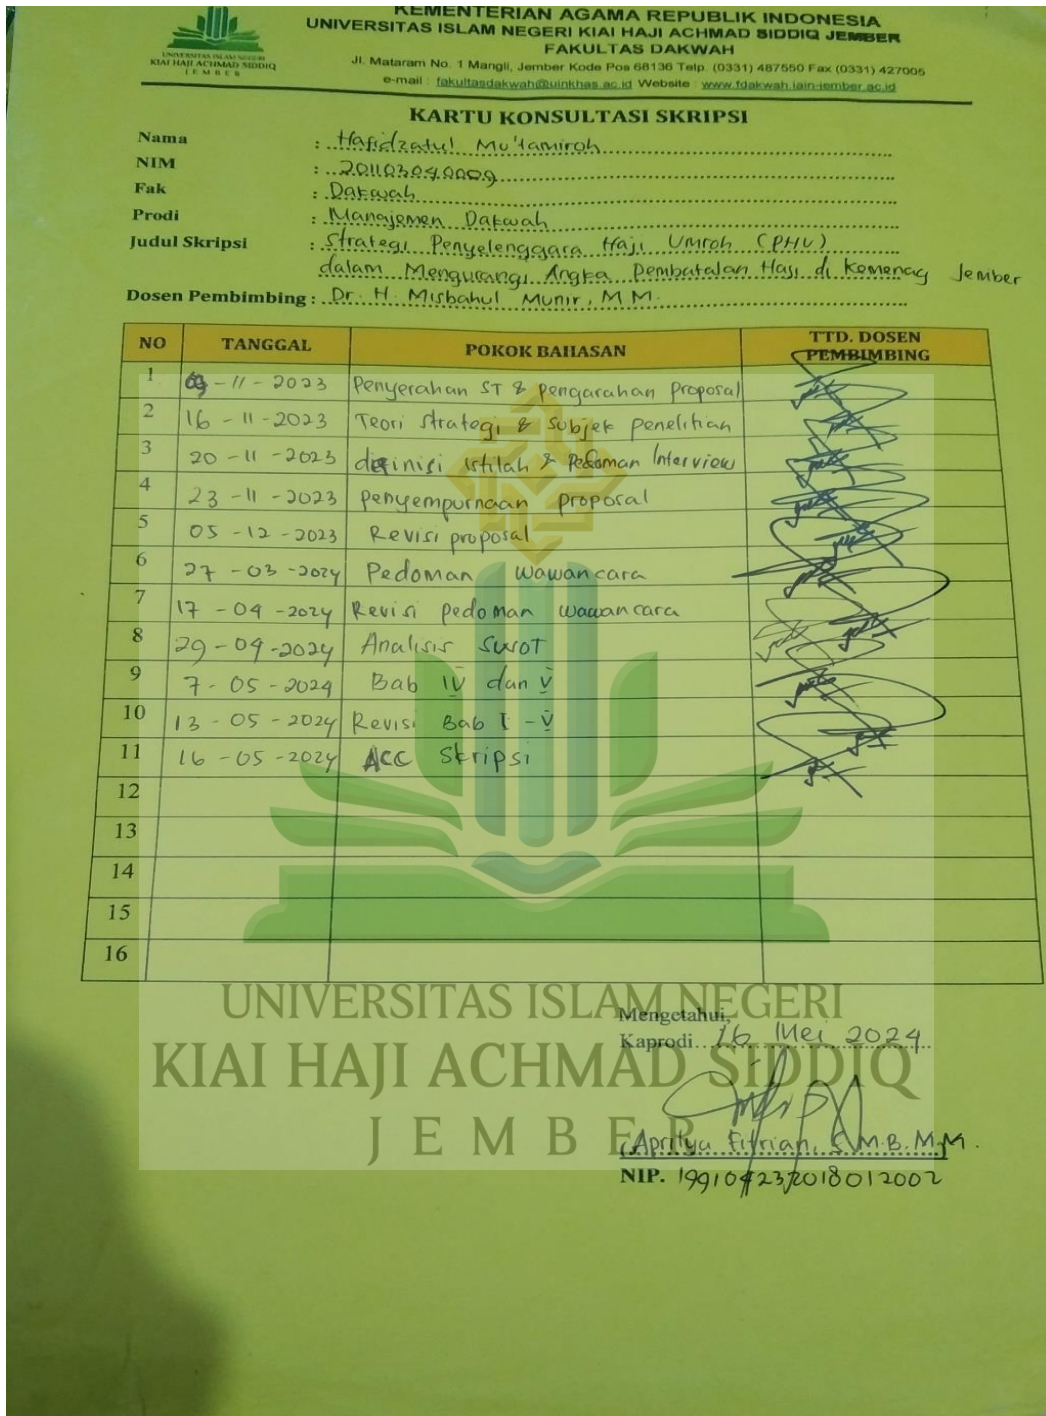 KEMENTERIAN AGAMA REPUBLIK INDONESIA
UNIVERSITAS ISLAM NEGERI KIAI HAJI ACHMAD SIDDIQ JEMBER
FAKULTAS DAKWAH
Jl. Mataram No. 1 Mangli, Jember Kode Pos 68136 Telp. (0331) 487550 Fax (0331) 427005
e-mail : fakultasdakwah@uinkhas.ac.id Website : www.fdakwah.iain-jember.ac.id
UNIVERSITAS ISLAM NEGERI
KIAI HAJI ACHMAD SIDDIQ
JEMBER
KARTU KONSULTASI SKRIPSI
Nama : Hafidzatul Mu'tamiroh
NIM : 201103040009
Fak : Dakwah
Prodi : Manajemen Dakwah
Judul Skripsi : Strategi Penyelenggara Haji Umroh (PHU)
dalam Mengurangi Angka Pembatalan Haji di Kemenag Jember
Dosen Pembimbing : Dr. H. Misbahul Munir, M M.
NO TANGGAL POKOK BAHASAN TTD. DOSEN PEMBIMBING
1 09-11-2023 Penyerahan ST & Pengarahan Proposal
2 16-11-2023 Teori Strategi & Subjek penelitian
3 20-11-2023 definisi istilah & Pedoman Interview
4 23-11-2023 penyempurnaan proposal
5 05-12-2023 Revisi proposal
6 27-03-2024 Pedoman wawancara
7 17-04-2024 Revisi pedoman wawancara
8 29-04-2024 Analisis SWOT
9 7-05-2024 Bab IV dan V
10 13-05-2024 Revisi Bab I - V
11 16-05-2024 ACC Skripsi
12
13
14
15
16
UNIVERSITAS ISLAM NEGERI
KIAI HAJI ACHMAD SIDDIQ
JEMBER
Mengetahui,
Kaprodi 16 Mei 2024
(Aprilya Fitriani, S.M.B.M.M.
NIP. 199104232018012002